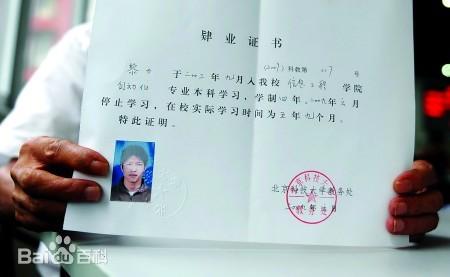 肄业证书
(2009)科教第 007 号
黎力 于二〇〇三年九月入我校信息工程学院
自动化 专业本科学习，学制四年。二〇〇九年六月
停止学习，在校实际学习时间为五年九个月。
特此证明。
北京科技大学教务处
二〇〇九年 月
Bai百科